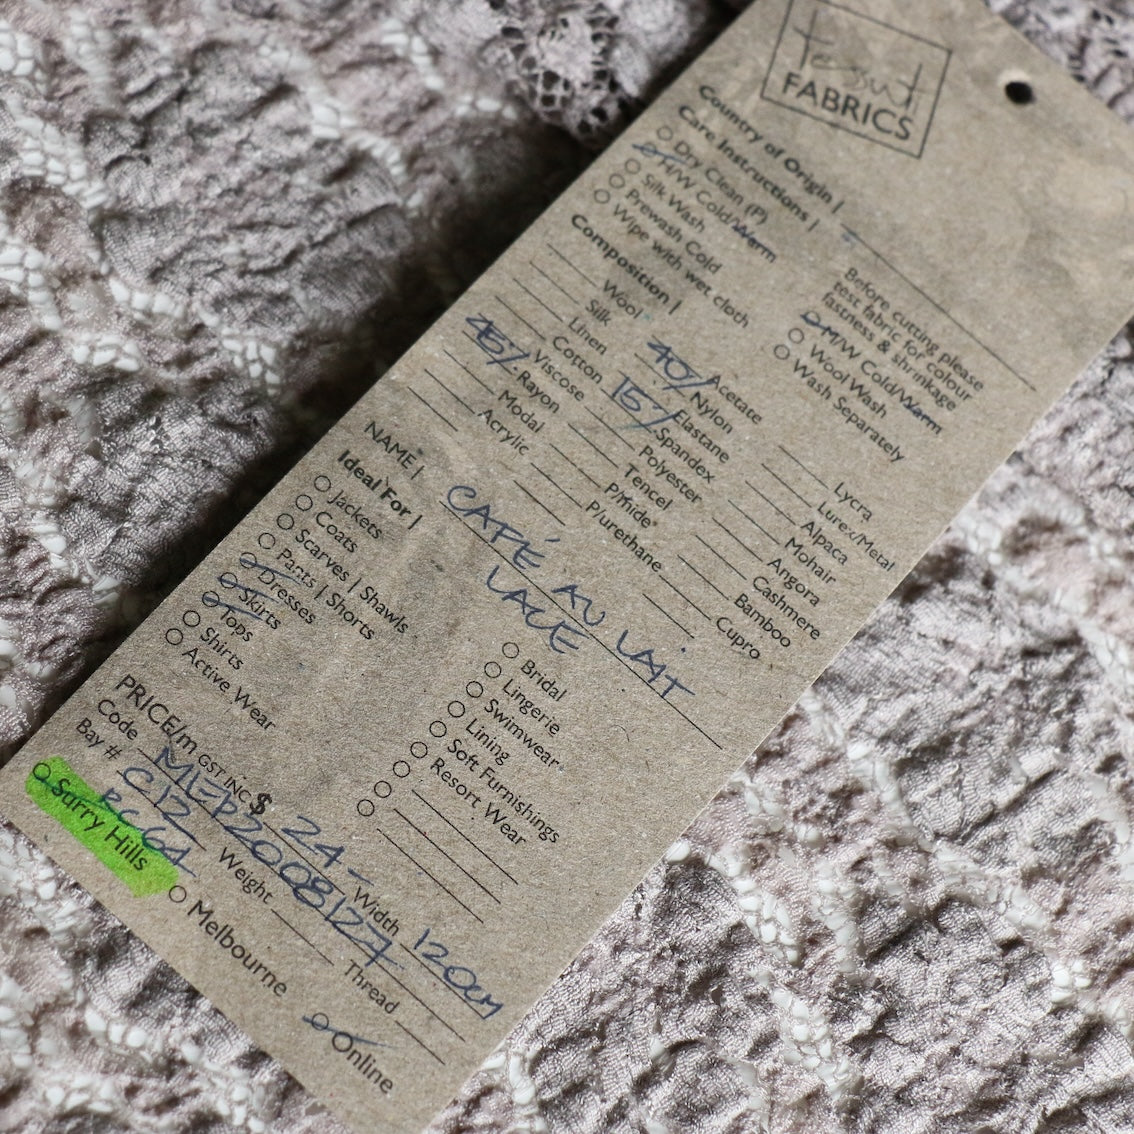 Tessuti
FABRICS
Country of Origin |
Care Instructions |
Dry Clean (P)
H/W Cold/Warm
Silk Wash
Prewash Cold
Wipe with wet cloth
Before cutting please
test fabric for colour
fastness & shrinkage
M/W Cold/Warm
Wool Wash
Wash Separately
Composition |
Wool
Silk
Linen
Cotton
Viscose
45% Rayon
Modal
Acrylic
Acetate
40% Nylon
Elastane
15% Spandex
Polyester
Tencel
P/mide
P/urethane
Lycra
Lurex/Metal
Alpaca
Mohair
Angora
Cashmere
Bamboo
Cupro
NAME | CAFÉ AU LAIT
LACE
Ideal For |
Jackets
Coats
Scarves | Shawls
Pants | Shorts
Dresses
Skirts
Tops
Shirts
Active Wear
Bridal
Lingerie
Swimwear
Lining
Soft Furnishings
Resort Wear
PRICE/m GST INC $ 24 - Width 120cm
Code MLEP2008127 Thread
Bay # C12 Weight
Surry Hills
Melbourne
Online